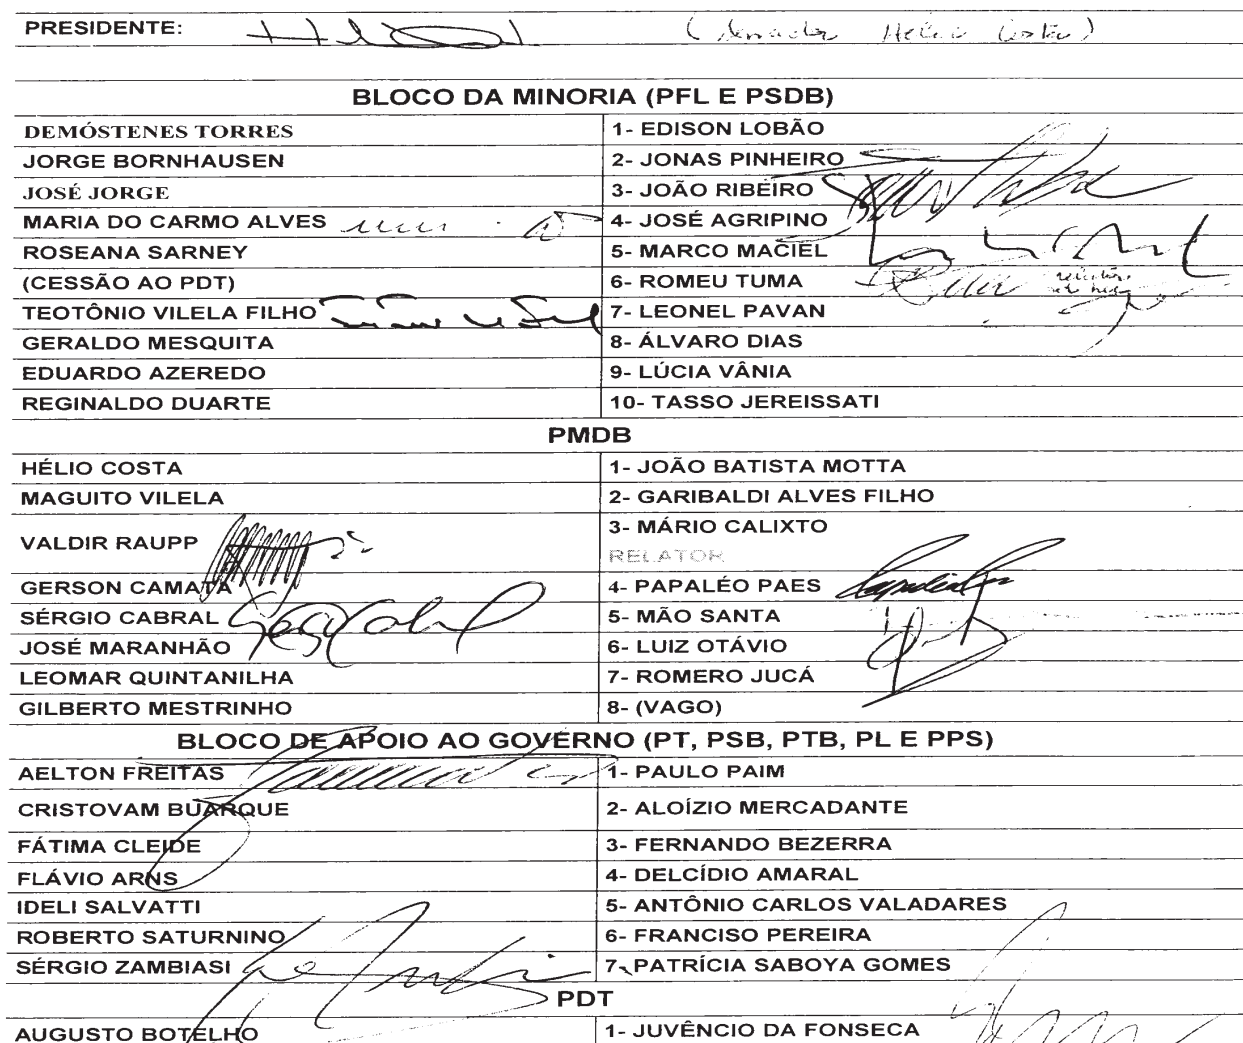 PRESIDENTE: (Senador Helio Costa)
BLOCO DA MINORIA (PFL E PSDB)
DEMÓSTENES TORRES 1- EDISON LOBÃO
JORGE BORNHAUSEN 2- JONAS PINHEIRO
JOSÉ JORGE 3- JOÃO RIBEIRO
MARIA DO CARMO ALVES 4- JOSÉ AGRIPINO
ROSEANA SARNEY 5- MARCO MACIEL
(CESSÃO AO PDT) 6- ROMEU TUMA
TEOTÔNIO VILELA FILHO 7- LEONEL PAVAN
GERALDO MESQUITA 8- ÁLVARO DIAS
EDUARDO AZEREDO 9- LÚCIA VÂNIA
REGINALDO DUARTE 10- TASSO JEREISSATI
PMDB
HÉLIO COSTA 1- JOÃO BATISTA MOTTA
MAGUITO VILELA 2- GARIBALDI ALVES FILHO
VALDIR RAUPP 3- MÁRIO CALIXTO
RELATOR
GERSON CAMATA 4- PAPALÉO PAES
SÉRGIO CABRAL 5- MÃO SANTA
JOSÉ MARANHÃO 6- LUIZ OTÁVIO
LEOMAR QUINTANILHA 7- ROMERO JUCÁ
GILBERTO MESTRINHO 8- (VAGO)
BLOCO DE APOIO AO GOVERNO (PT, PSB, PTB, PL E PPS)
AELTON FREITAS 1- PAULO PAIM
CRISTOVAM BUARQUE 2- ALOÍZIO MERCADANTE
FÁTIMA CLEIDE 3- FERNANDO BEZERRA
FLÁVIO ARNS 4- DELCÍDIO AMARAL
IDELI SALVATTI 5- ANTÔNIO CARLOS VALADARES
ROBERTO SATURNINO 6- FRANCISO PEREIRA
SÉRGIO ZAMBIASI 7- PATRÍCIA SABOYA GOMES
PDT
AUGUSTO BOTELHO 1- JUVÊNCIO DA FONSECA